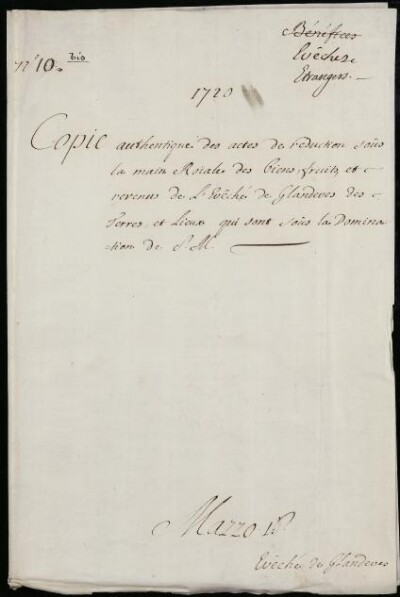 Bénéfices
Evêchez
Etrangers.
N.º 10. bis
1720
Copie authentique des actes de reduction sous
la main Roiale des biens, fruits et
revenus de L'Evêché de Glandeves des
Terres, et Lieux qui sont sous la Domina
tion de S. M.
Mazzo 1º
Evêché de Glandeves